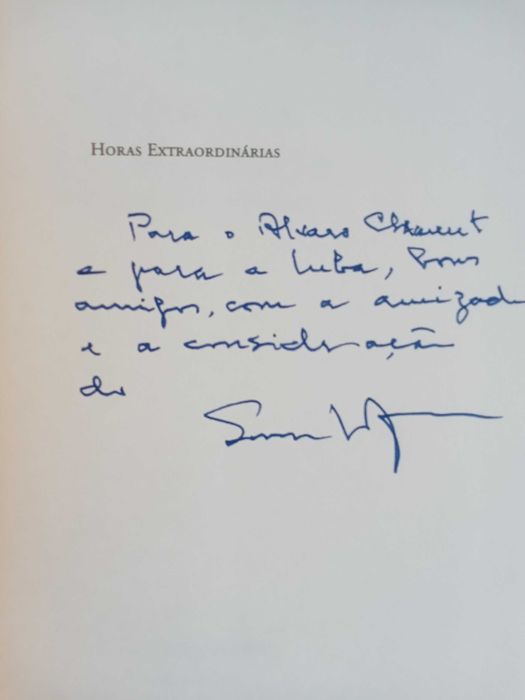 HORAS EXTRAORDINÁRIAS
Para o Alvaro
e para a Luba, bons
amigos, com a amizade
e a consideração
do